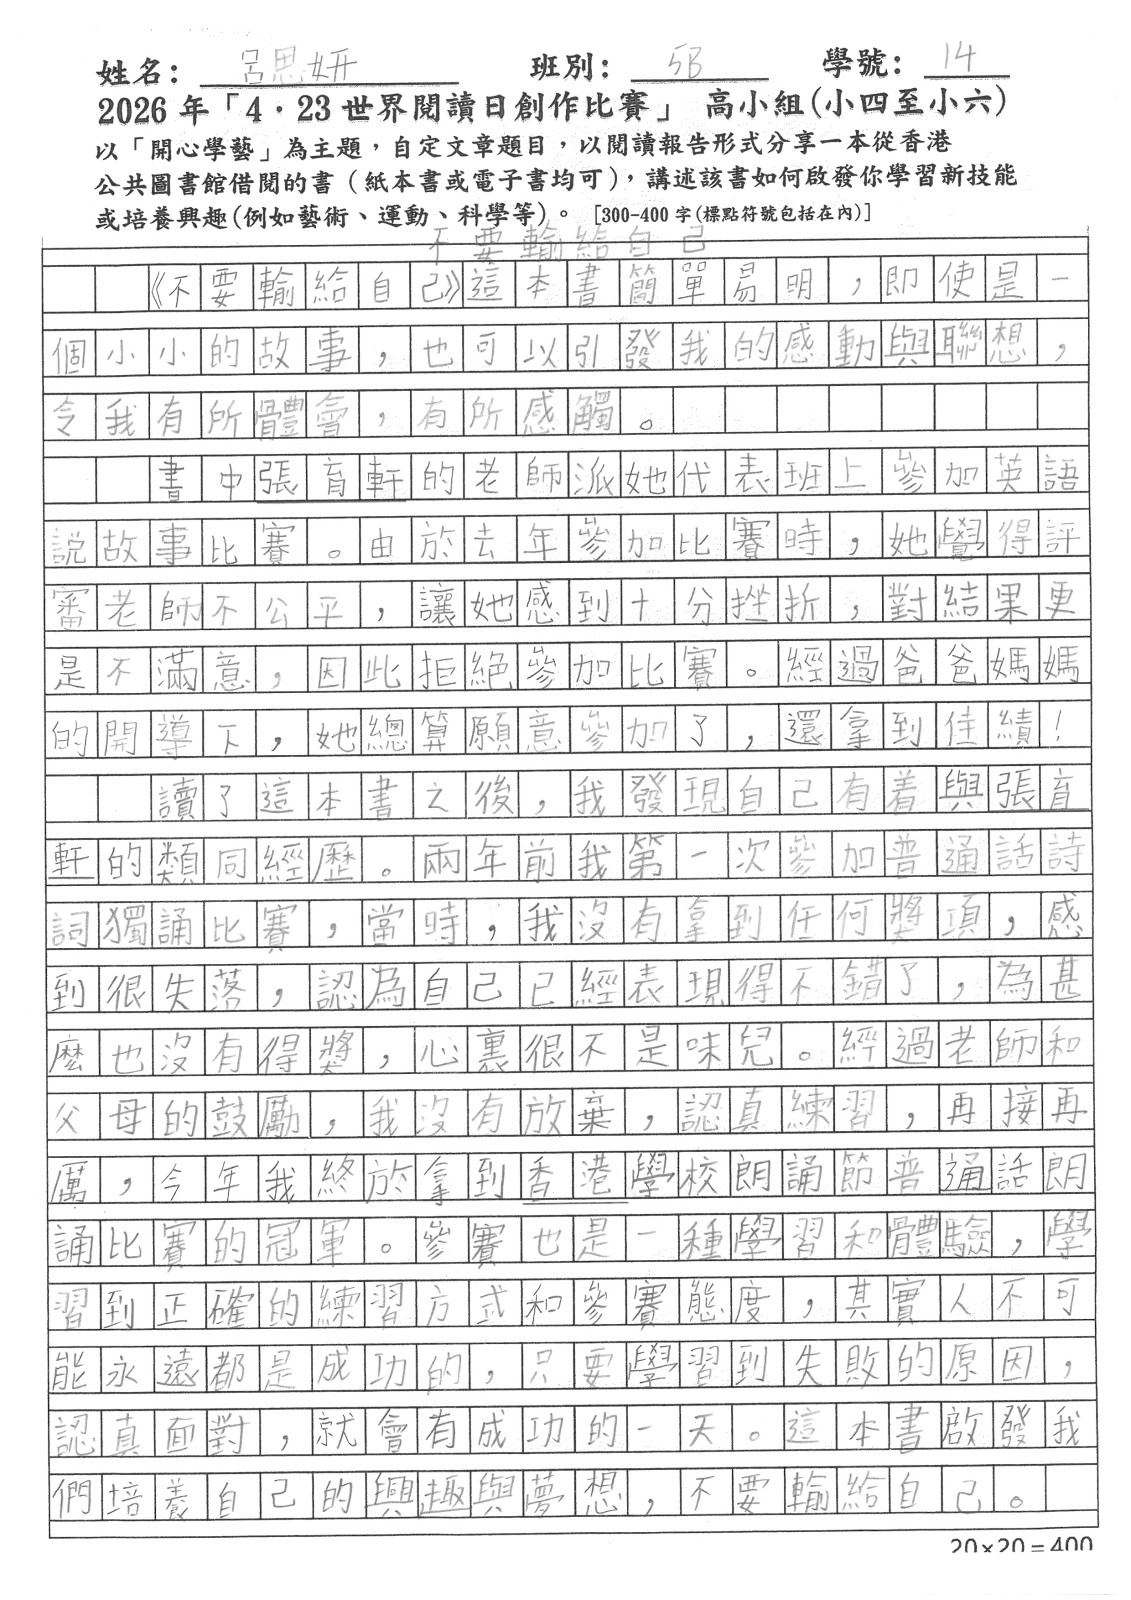 姓名：呂思妍 班別：5B 學號：14
2026 年「4・23 世界閱讀日創作比賽」 高小組(小四至小六)
以「開心學藝」為主題，自定文章題目，以閱讀報告形式分享一本從香港
公共圖書館借閱的書（紙本書或電子書均可），講述該書如何啟發你學習新技能
或培養興趣(例如藝術、運動、科學等)。 [300-400 字(標點符號包括在內)]
不要輸給自己
《不要輸給自己》這本書簡單易明，即使是一
個小小的故事，也可以引發我的感動與聯想，
令我有所體會，有所感觸。
書中張育軒的老師派她代表班上參加英語
說故事比賽。由於去年參加比賽時，她覺得評
審老師不公平，讓她感到十分挫折，對結果更
是不滿意，因此拒絕參加比賽。經過爸爸媽媽
的開導下，她總算願意參加了，還拿到佳績！
讀了這本書之後，我發現自己有着與張育
軒的類同經歷。兩年前我第一次參加普通話詩
詞獨誦比賽，當時，我沒有拿到任何獎項，感
到很失落，認為自己已經表現得不錯了，為甚
麼也沒有得獎，心裏很不是味兒。經過老師和
父母的鼓勵，我沒有放棄，認真練習，再接再
厲，今年我終於拿到香港學校朗誦節普通話朗
誦比賽的冠軍。參賽也是一種學習和體驗，學
習到正確的練習方式和參賽態度，其實人不可
能永遠都是成功的，只要學習到失敗的原因，
認真面對，就會有成功的一天。這本書啟發我
們培養自己的興趣與夢想，不要輸給自己。
20×20=400